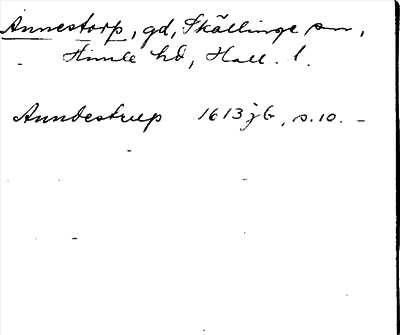 Annestorp, gd, Skällinge sn,
Himle hd, Hall. l.
Anndestrup 1613 jb, s. 10. –